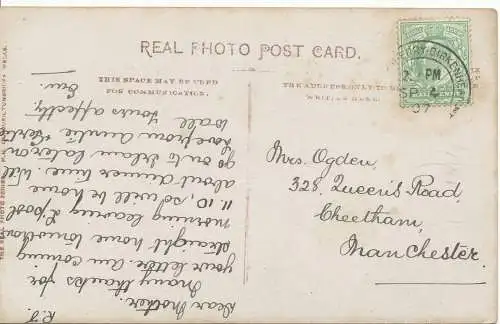 REAL PHOTO POST CARD.
THIS SPACE MAY BE USED
FOR COMMUNICATION.
THE ADDRESS ONLY TO BE
WRITTEN HERE.
2. PM
SP
07
R.F.
Dear Mother.
Many thanks for
your letter. Am coming
straight home tomorrow
morning leaving L'pool
11.10, so will be home
about dinner time. Will
go on to Irlam later on
Love from Auntie +
to all
Yours affectly
Mrs. Ogden,
328, Queen's Road,
Cheetham,
Manchester.